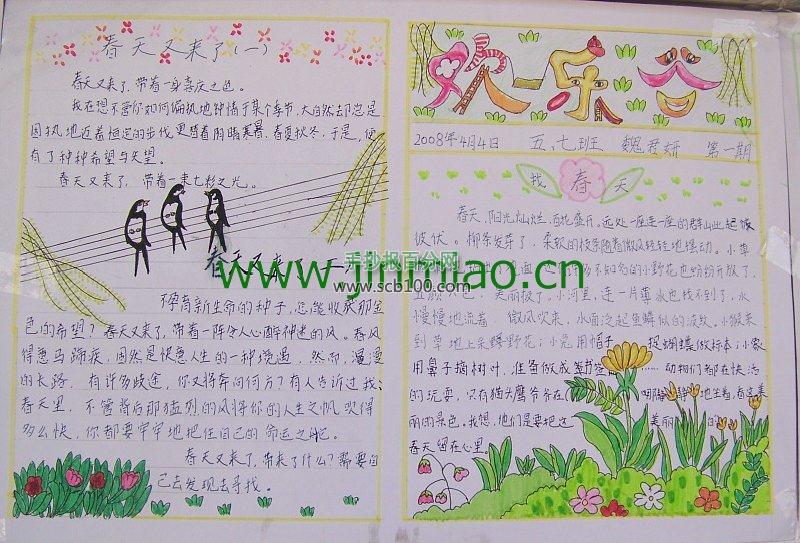 春天又来了(一)
春天又来了,带着一身喜庆之色。
我在想不管你如何偏执地钟情于某个季节,大自然却总是
固执地迈着恒定的步伐 更替着阴晴寒暑,春夏秋冬,于是,便
有了种种希望与失望。
春天又来了,带着一束七彩之光。
春天又来了
孕育新生命的种子,总能收获那金
色的希望?春天又来了,带着一阵令人心醉神迷的风。春风
得意马蹄疾,固然是快意人生的一种境遇,然而,漫漫
的长路,有许多歧途,你又将奔向何方?有人告诉过我:
春天里,不管背后那猛烈的风将你的人生之帆吹得
多么快,你都要牢牢地把住自己的命运之舵。
春天又来了,带来了什么?需要自
己去发现去寻找。
欢乐谷
2008年4月4日 五、七班 魏君妍 第一期
找春天
春天,阳光灿烂,百花盛开。远处一座连一座的群山此起
彼伏。柳条发芽了,柔软的枝条随着微风轻轻地摆动。小草
不知名的小野花也纷纷开放了,
五颜六色,美丽极了,小河里,连一片薄冰也找不到了,水
慢慢地流着,微风吹来,水面泛起鱼鳞似的波纹。小猴来
到草地上采野花;小兔用帽子捉蝴蝶做标本;小象
用鼻子摘树叶,准备做成书签 …… 动物们都在快活
的玩耍,只有猫头鹰爷爷在 静静地坐着看这美
丽的景色。我想,他们是要把这 美丽的
春天留在心里。
手抄报百分网
www.scb100.com
www.jinmiao.cn